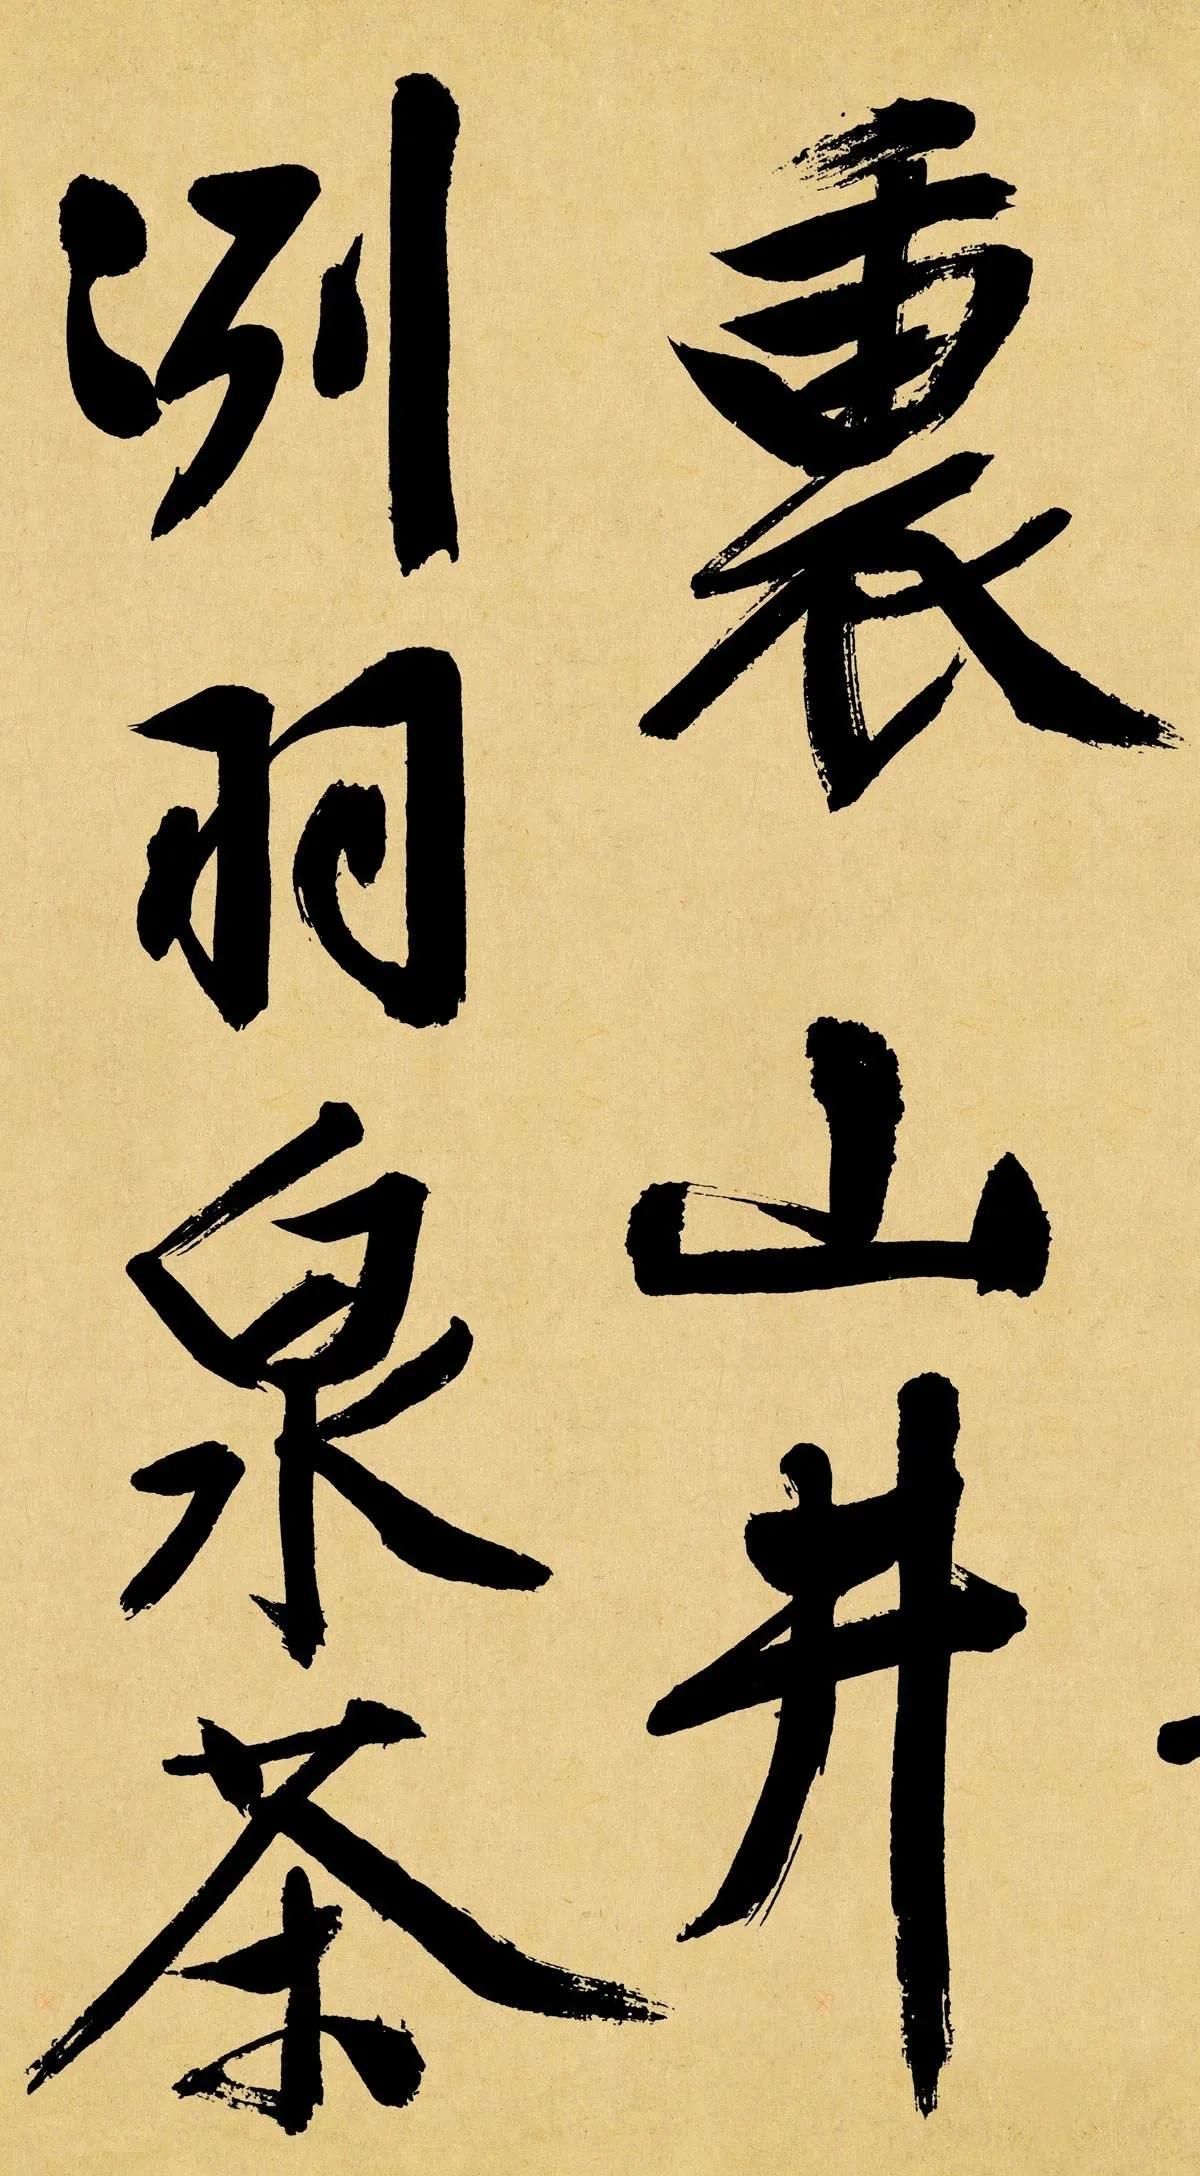 裏山井
冽羽泉茶